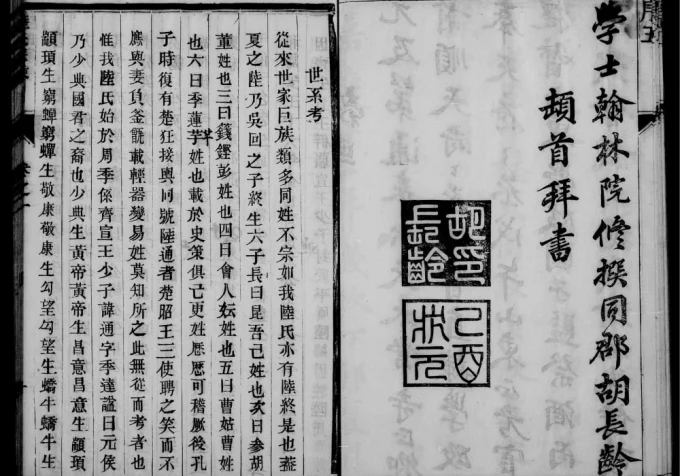 學士翰林院修撰同郡胡長齡
頓首拜書
胡印長齡
乙酉狀元
世系考
從來世家巨族類多同姓不宗如我陸氏亦有陸終是也蓋
夏之陸乃吳回之子終生六子長曰昆吾己姓也次曰參胡
董姓也三曰籛鏗彭姓也四曰會人妘姓也五曰曹姑曹姓
也六曰季蓮芈姓也載於史策俱已更姓歷歷可稽厥後孔
子時復有楚狂接輿同號陸通者楚昭王三使聘之笑而不
應與妻負釜甑載輕器變易姓莫知所之此無從而考者也
惟我陸氏始於周季係齊宣王少子諱通字季達謚曰元侯
乃少典國君之裔也少典生黃帝黃帝生昌意昌意生顓頊
顓頊生窮蟬窮蟬生敬康敬康生勾望勾望生蟜牛蟜牛生